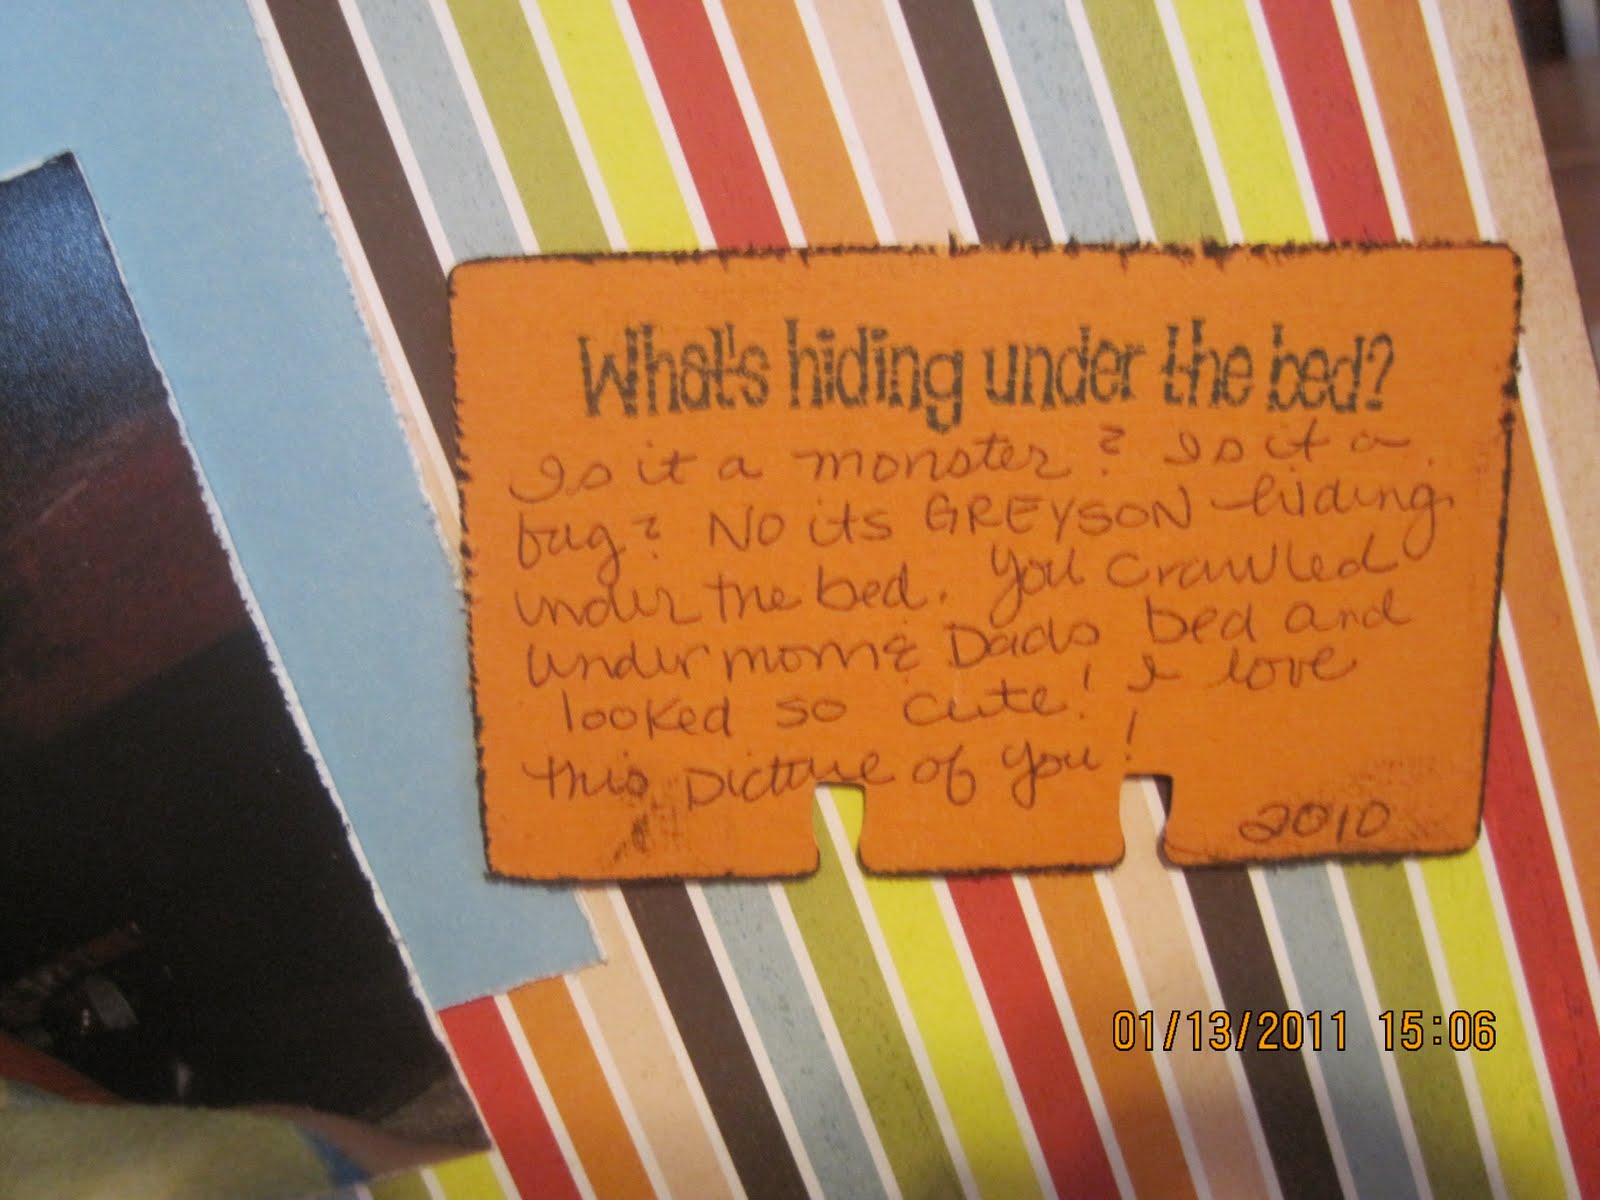 What's hiding under the bed?
Is it a monster? Is it a
bug? No its GREYSON hiding
under the bed. You crawled
under mom & Dads bed and
looked so cute! I love
this picture of you!
2010
01/13/2011 15:06